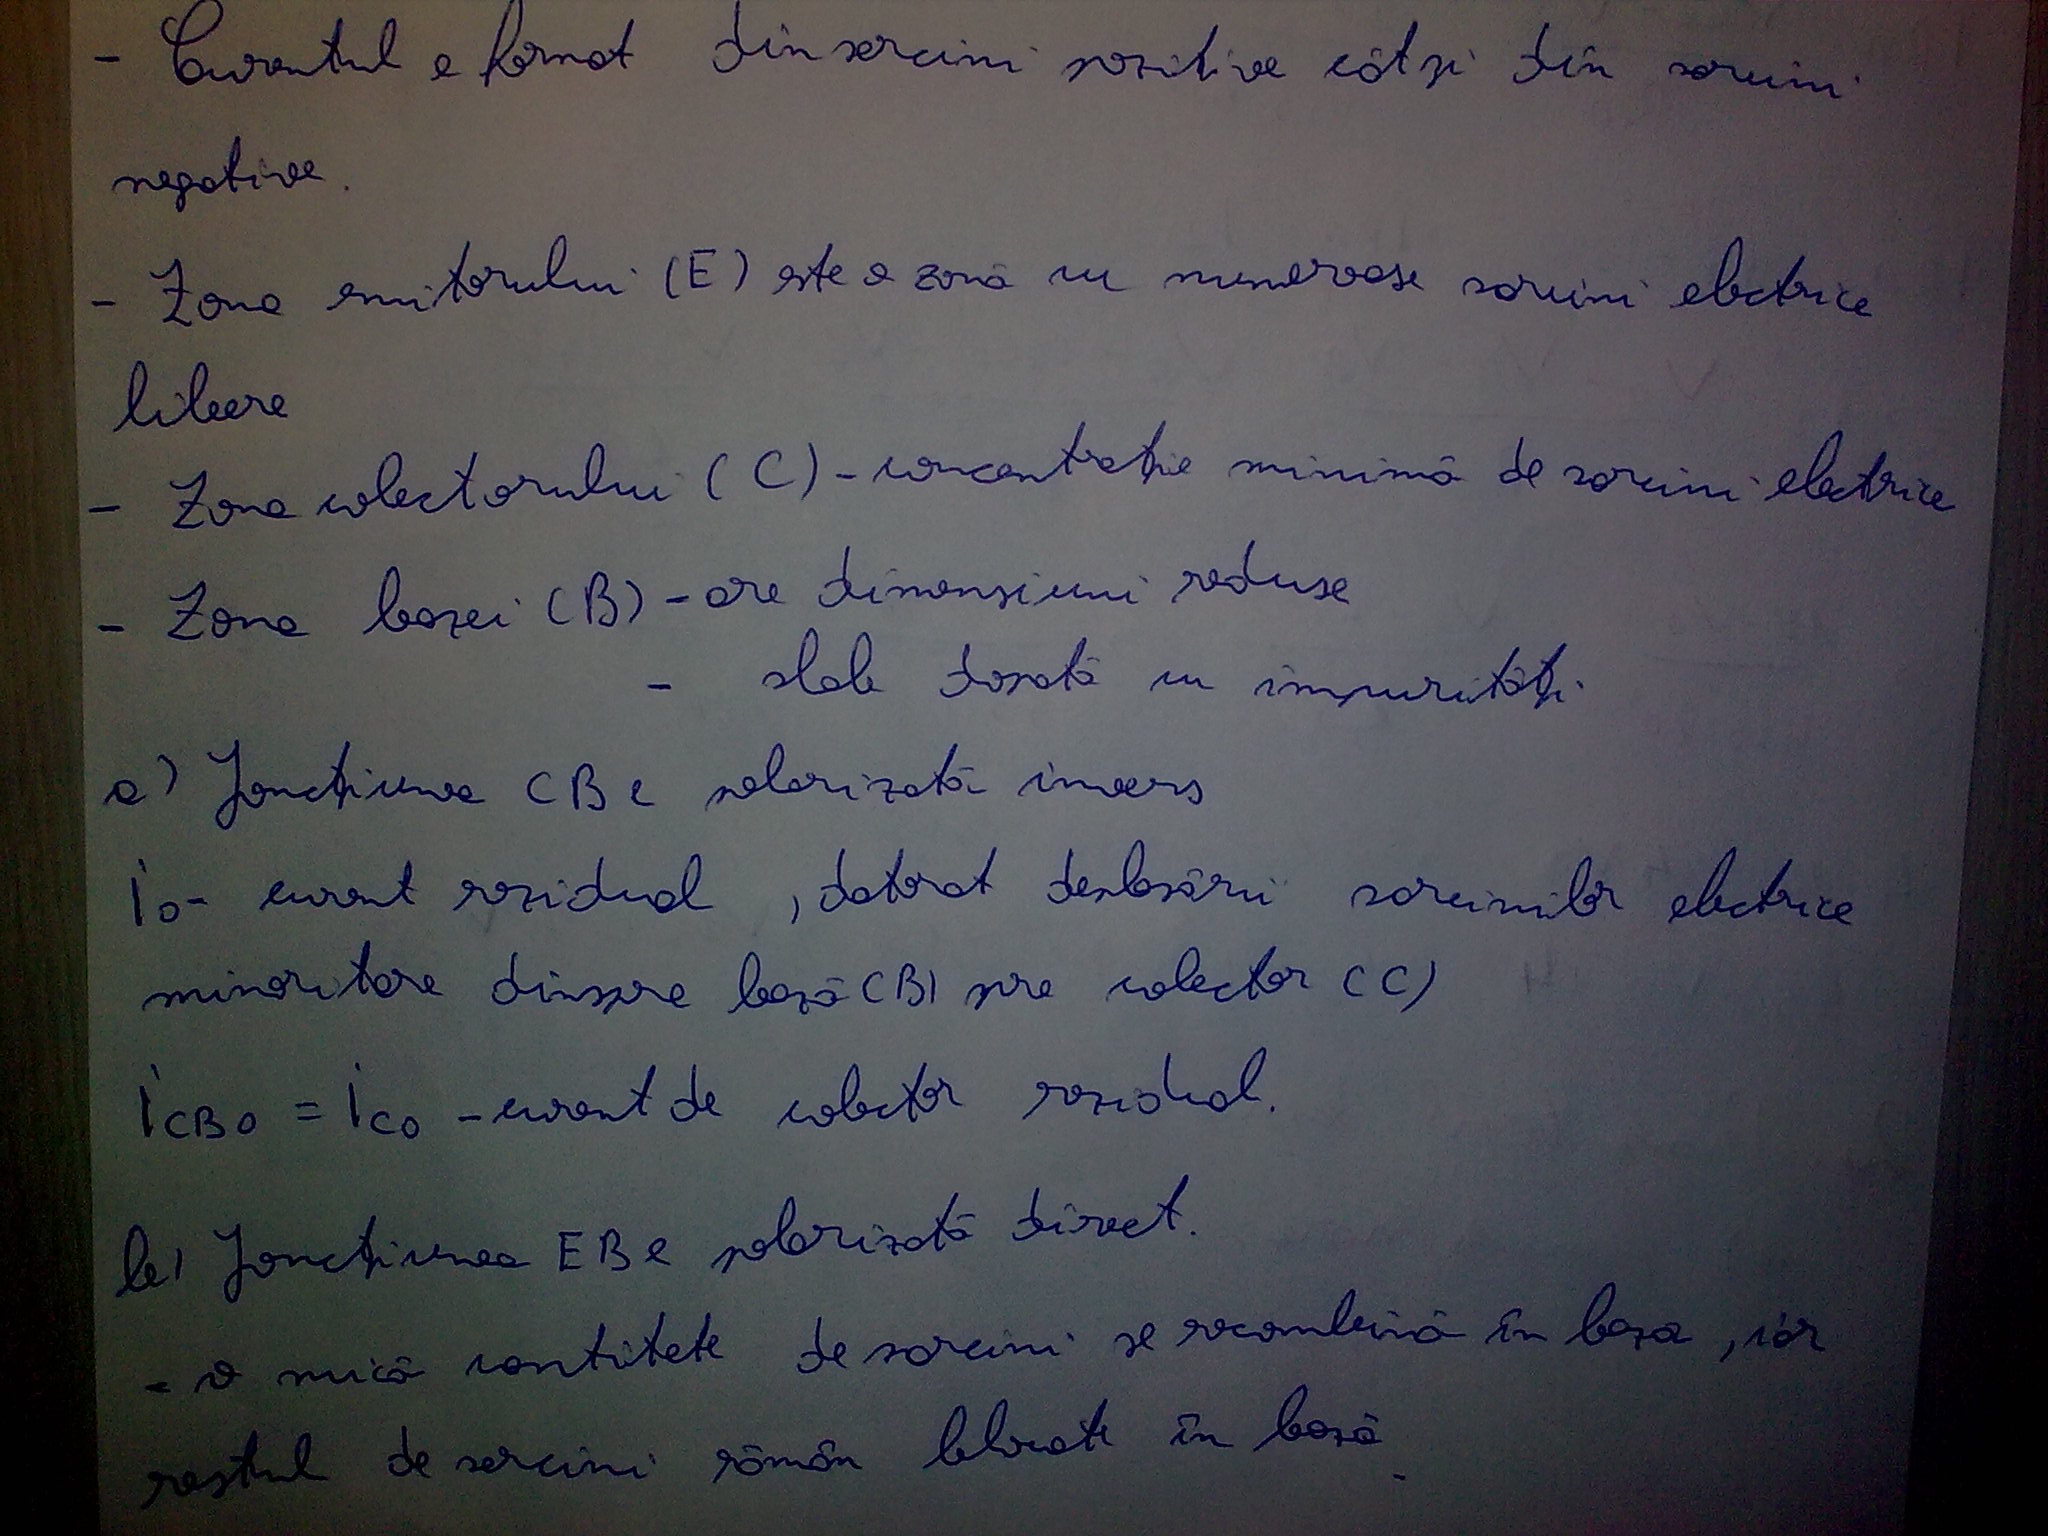 - Curentul e format din sarcini pozitive cât și din sarcini
negative.
- Zona emitorului (E) este o zonă cu numeroase sarcini electrice
libere
- Zona colectorului (C) - concentrație minimă de sarcini electrice
- Zona bazei (B) - are dimensiuni reduse
- slab dopată cu impurități
a) Joncțiunea CB e polarizată invers
i0 - curent rezidual, datorat deplasării sarcinilor electrice
minoritare dinspre bază (B) spre colector (C)
iCB0 = iC0 - curent de colector rezidual.
b) Joncțiunea EB e polarizată direct.
- o mică cantitete de sarcini se recombină în baza, iar
restul de sarcini rămân blocate în bază.